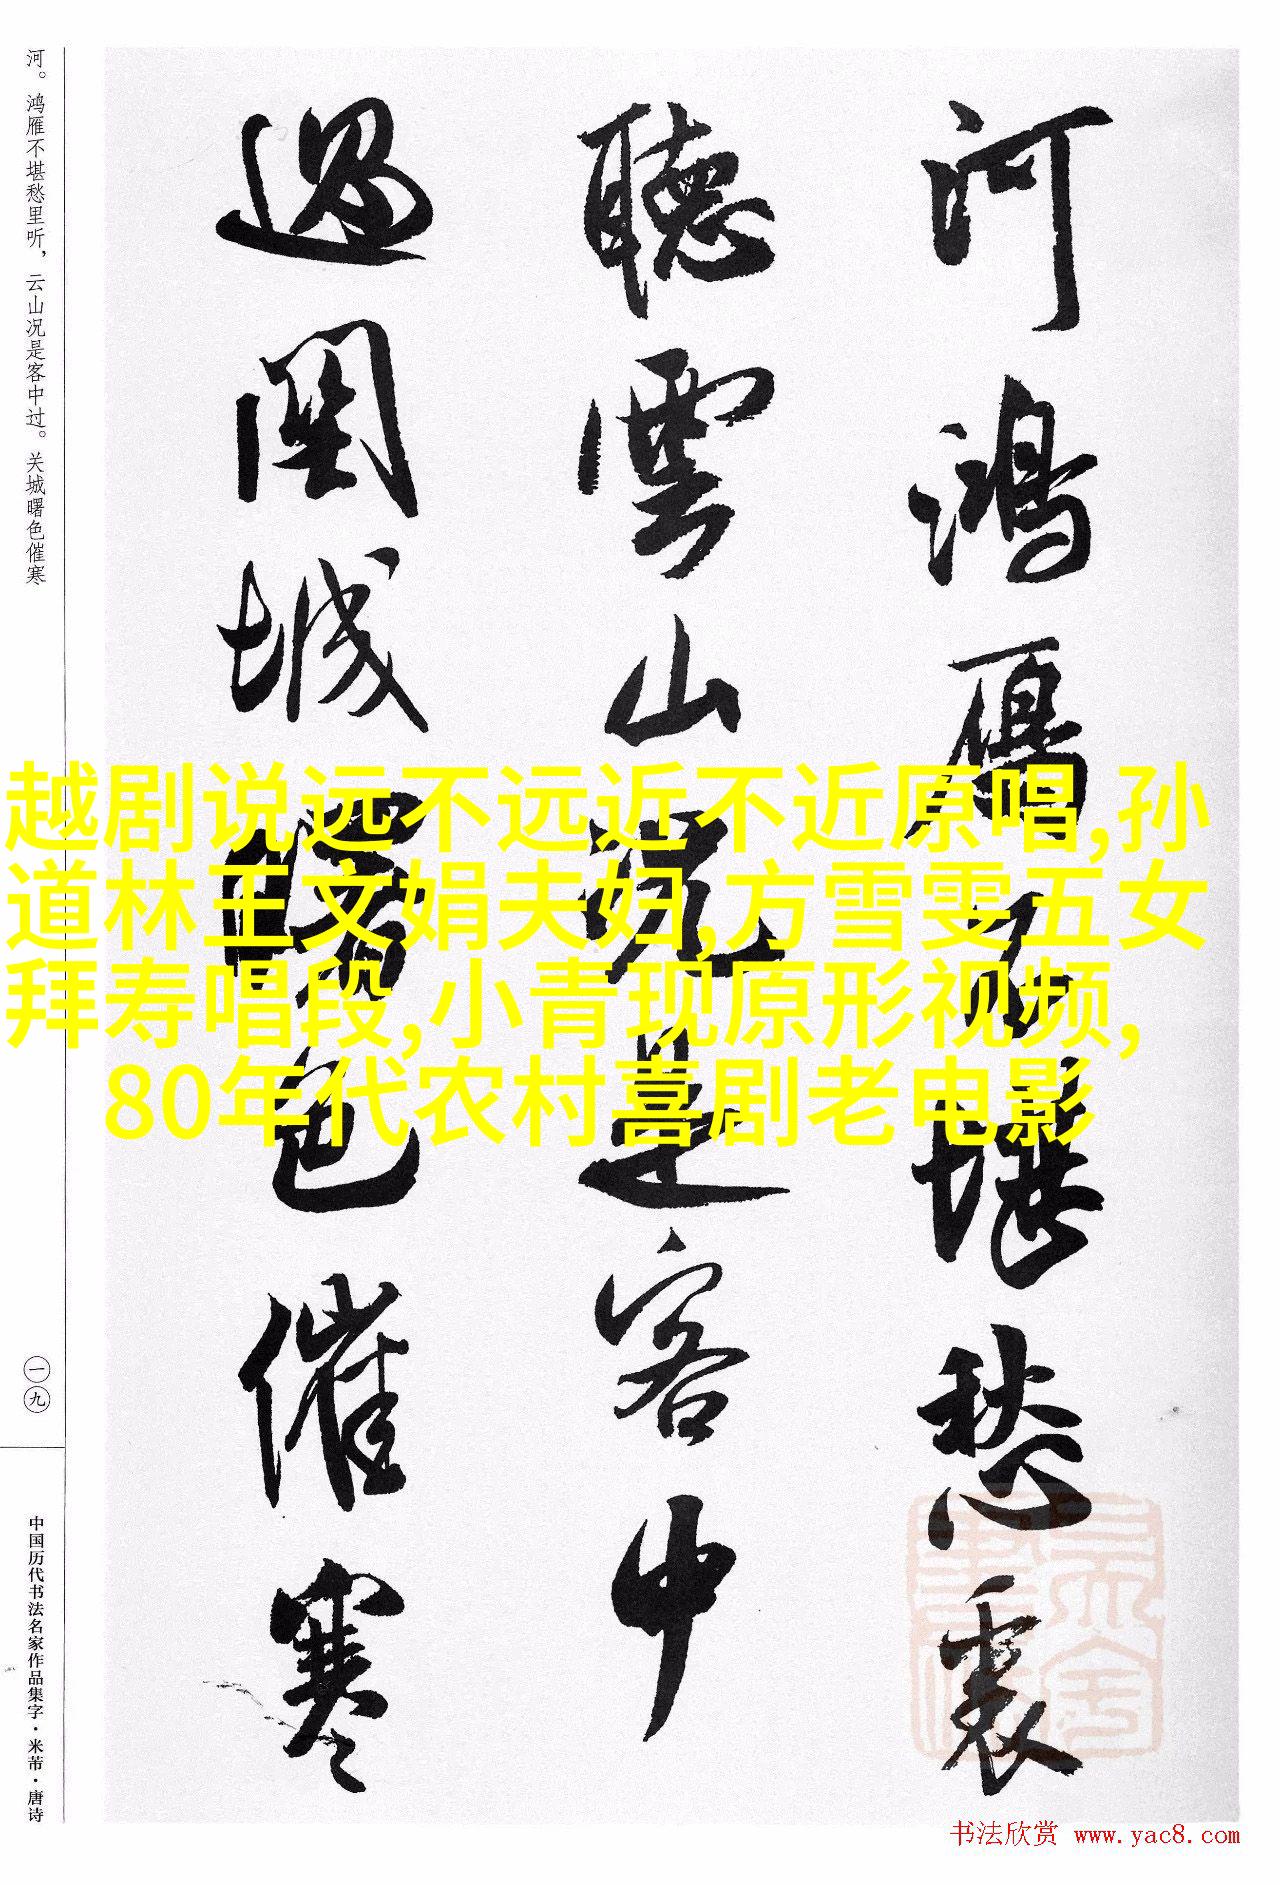 河。鸿雁不堪愁里听，云山况是客中过。关城曙色催寒
一九
中国历代书法名家作品集字·米芾·唐诗
河鴻雁不堪愁裏
聽雲山況是客中
過関城曙色催寒
越剧说远不远近不近原唱,孙
道林王文娟夫妇,方雪雯五女
拜寿唱段,小青现原形视频,
80年代农村喜剧老电影
书法欣赏 www.yac8.com